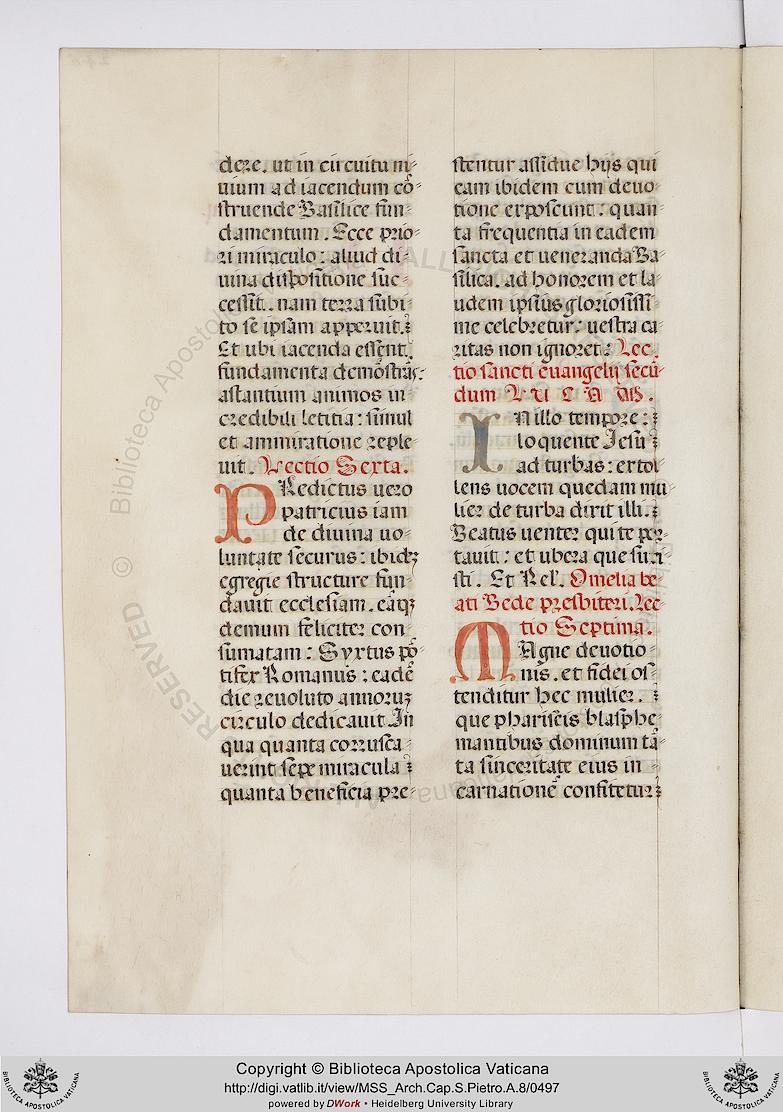 dere. ut in circuitu ni-
uium ad iacendum cō-
struende Basilice fun-
damentum. Ecce prio-
ri miraculo: aliud di-
uina dispositione suc-
cessit. nam terra subi-
to se ipsam apperuit.
Et ubi iacenda essent.
fundamenta demōstrās:
astantium animos in-
credibili letitia: simul
et ammiratione reple-
uit. Lectio Sexta.
PRedictus uero
patricius iam
de diuina uo-
luntate securus: ibidez
egregie structure fun-
dauit ecclesiam. eāqz
demum feliciter con-
sumatam: Syxtus pō-
tifex Romanus: eadē
die reuoluto annoruz
circulo dedicauit In
qua quanta corrusca-
uerint sepe miracula
quanta beneficia pre-
stentur assidue hijs qui
eam ibidem cum deuo-
tione exposcunt: quan-
ta frequentia in eadem
sancta et ueneranda Ba-
silica. ad honorem et la-
udem ipsius gloriosissi-
me celebretur: uestra ca-
ritas non ignoret: Lec-
tio sancti euangelij secū-
dum LUCAM.
IN illo tempore:
loquente Jesu
ad turbas: extol-
lens uocem quedam mu-
lier de turba dixit illi.
Beatus uenter qui te por-
tauit: et ubera que suxi-
sti. Et Rel'. Omelia be-
ati Bede presbiteri. Lec-
tio Septima.
MAgne deuotio-
nis. et fidei os-
tenditur hec mulier.
que phariseis blasphe-
mantibus dominum tā-
ta sinceritate eius in-
carnationē confitetur
© Biblioteca Apostolica Vaticana
RESERVED
Copyright © Biblioteca Apostolica Vaticana
http://digi.vatlib.it/view/MSS_Arch.Cap.S.Pietro.A.8/0497
powered by DWork • Heidelberg University Library
BIBLIOTECA APOSTOLICA VATICANA
BIBLIOTECA APOSTOLICA VATICANA